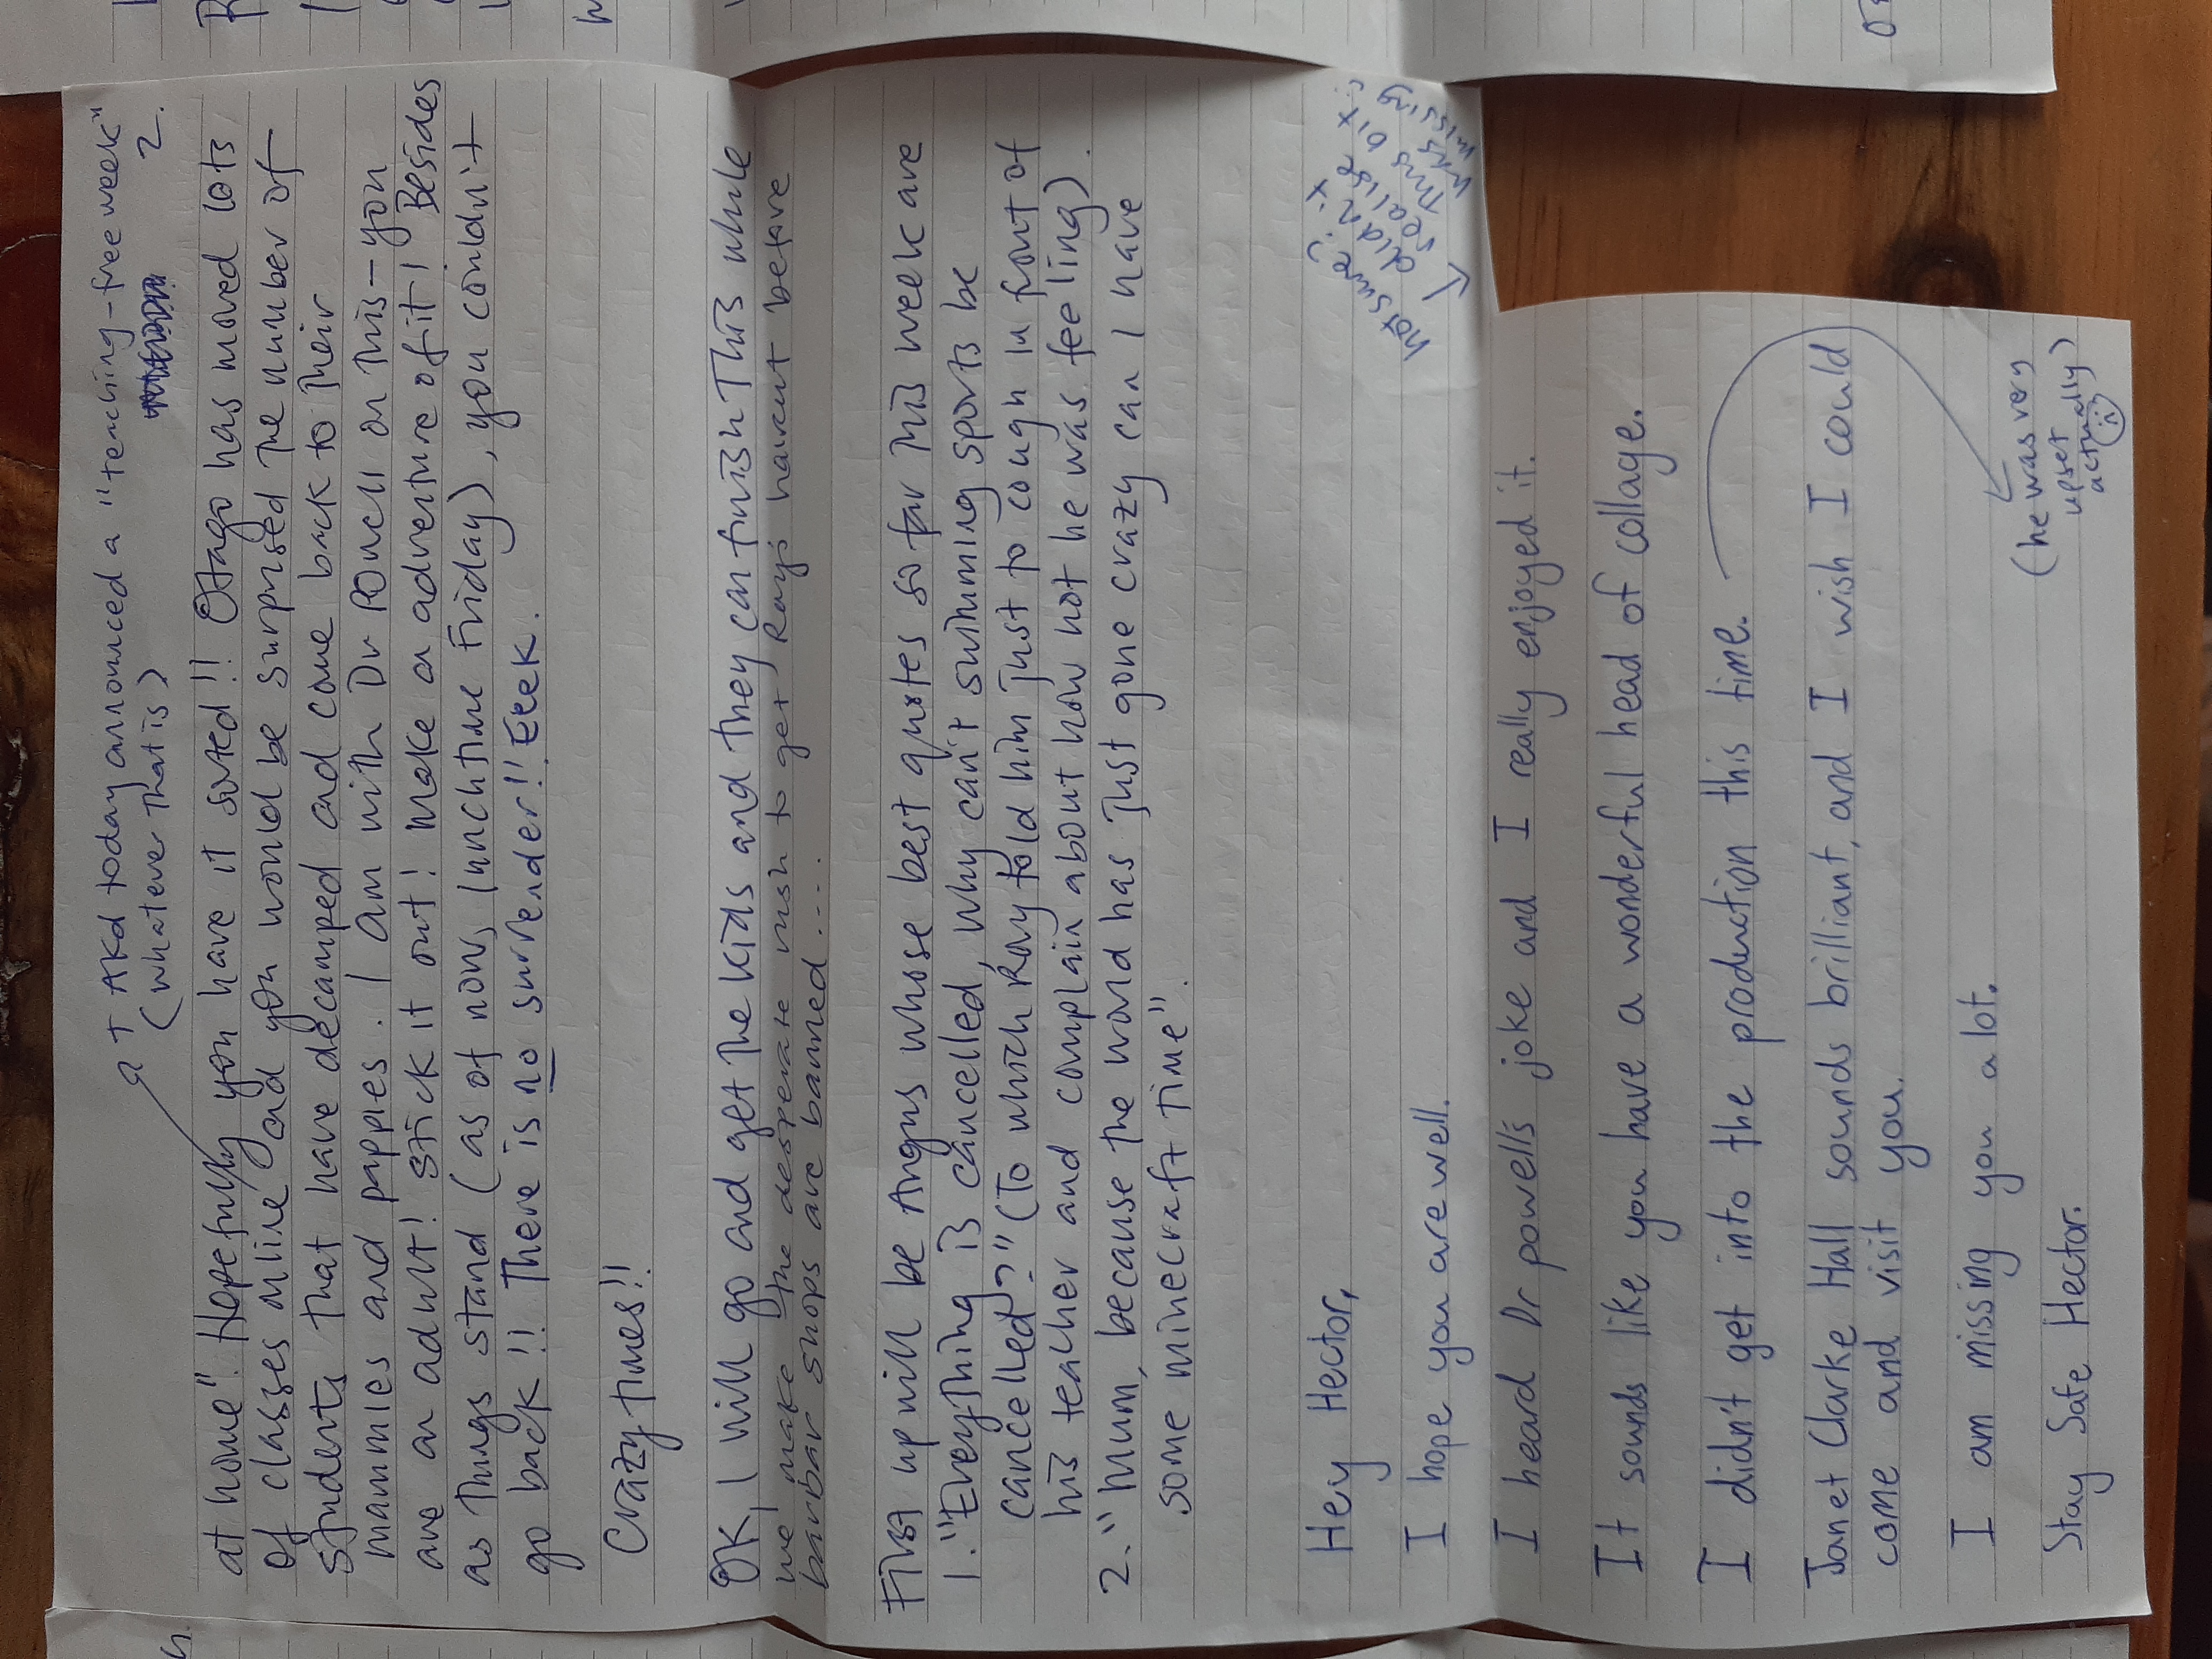 + AKd today announced a "teaching-free week"
(whatever that is)
2.
at home". Hopefully you have it sorted!! Otago has moved lots
of classes online and you would be surprised the number of
students that have decamped and come back to their
mammies and pappies. I am with Dr Powell on this - you
are an adult! Stick it out! Make an adventure of it! Besides
as things stand (as of now, lunchtime Friday), you couldn't
go back!! There is no surrender!! Eeek.
Crazy times!!
OK, I will go and get the kids and they can finish this while
we make the desperate rush to get Ray's haircut before
barbar shops are banned....
First up will be Angus whose best quotes so far this week are
1. "Everything is cancelled, why can't swimming sports be
cancelled?" (To which Ray told him just to cough in front of
his teacher and complain about how hot he was feeling).
2. "Mum, because the world has just gone crazy can I have
some minecraft time".
Hey Hector,
I hope you are well.
I heard Dr powells joke and I really enjoyed it.
It sounds like you have a wonderful head of collage.
I didn't get into the production this time.
(he was very
upset
actually)
Janet Clarke Hall sounds brilliant, and I wish I could
come and visit you.
I am missing you a lot.
Stay Safe Hector.
Not sure
didn't
realise
this bit
was
missing